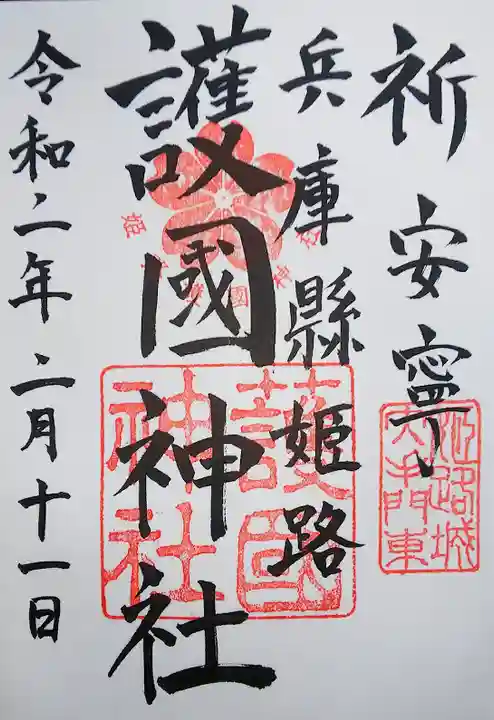 祈安寧
兵庫縣姫路
護國神社
令和二年二月十一日
護國神社
姫路城大手門東